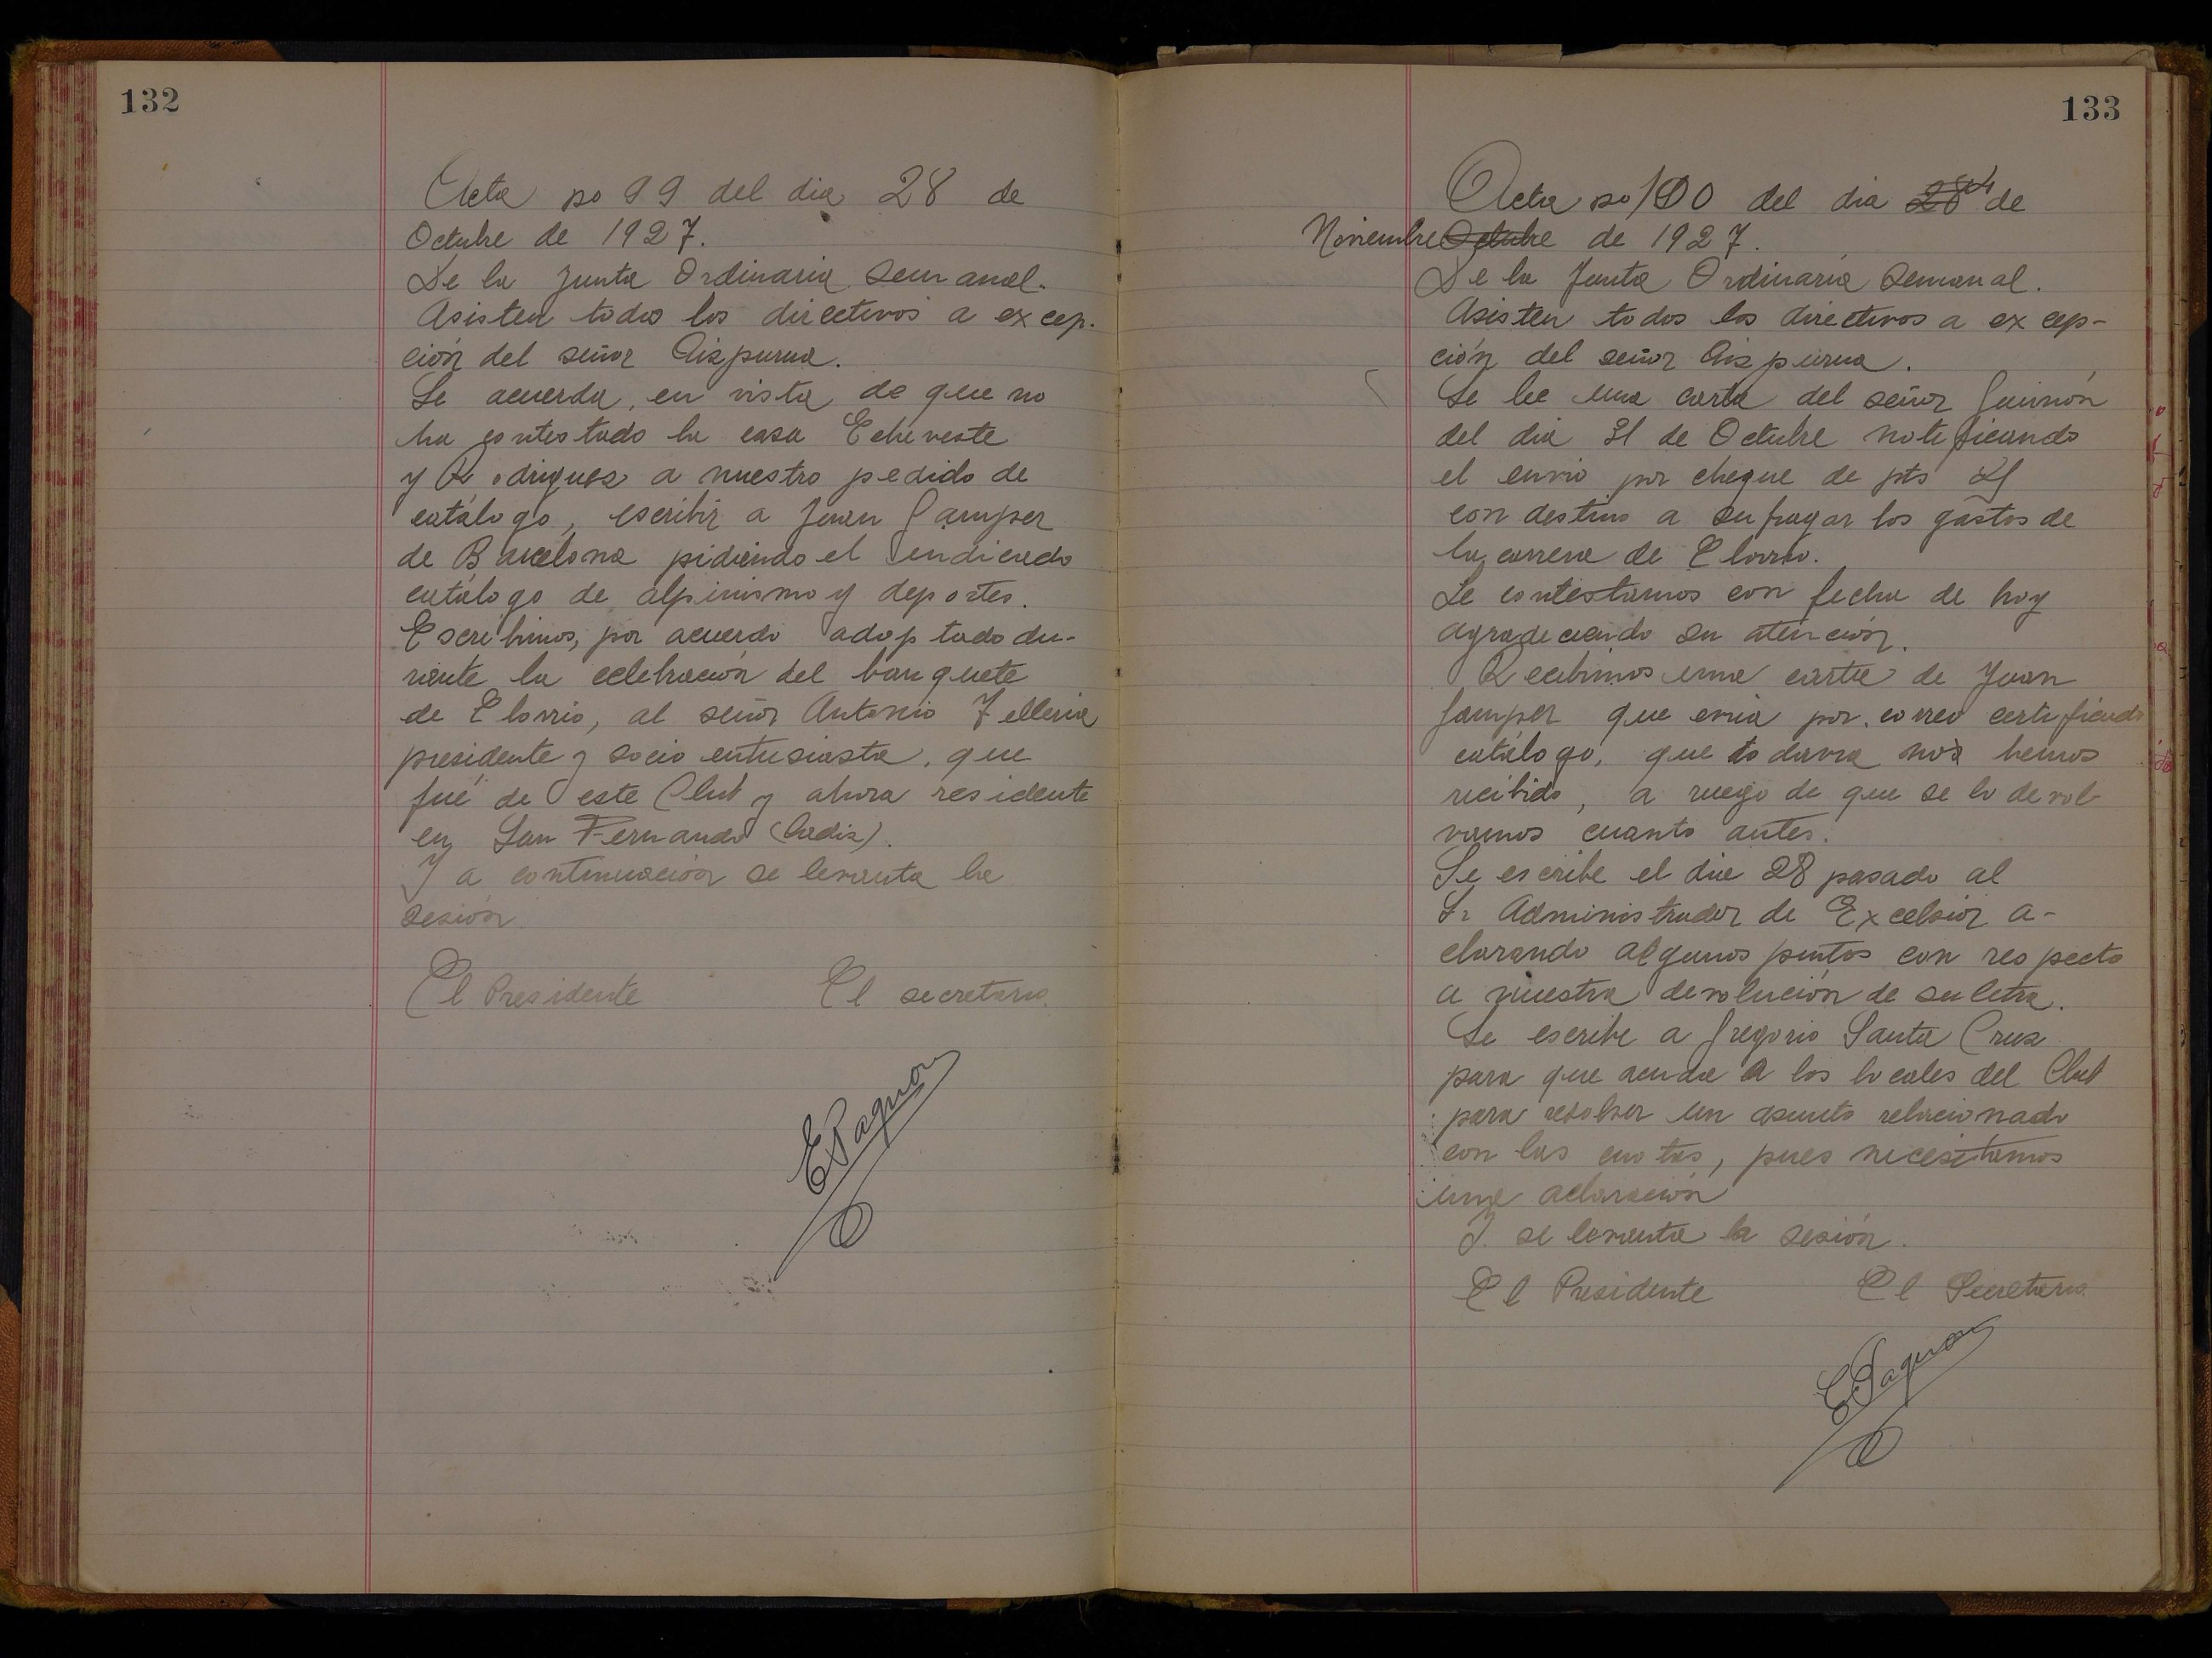 132
Acta no 99 del dia 28 de
Octubre de 1927.
De la Junta Ordinaria Semanal.
Asisten todos los directivos a excep-
ción del señor Aizpurua.
Se acuerda, en vista de que no
ha contestado la casa Echeveste
y Rodriguez a nuestro pedido de
catálogo, escribir a Juan Gamper
de Barcelona pidiendo el indicado
catálogo de alpinismo y deportes.
Escribimos, por acuerdo adoptado du-
rante la celebración del banquete
de Elorrio, al señor Antonio Telleria
presidente y socio entusiasta, que
fué de este Club y ahora residente
en San Fernando (Cadiz).
Y a continuación se levanta la
sesión
El Presidente El secretario
133
Acta no 100 del dia 28 4 de
Noviembre Octubre de 1927.
De la Junta Ordinaria Semanal.
Asisten todos los directivos a excep-
ción del señor Aizpurua.
Se lee una carta del señor
del dia 31 de Octubre notificando
el envio por cheque de pts
con destino a sufragar los gastos de
la carrera de Elorrio.
Le contestamos con fecha de hoy
agradeciendo su atención.
Recibimos una carta de Juan
Gamper que envia por correo certificado
catálogo, que todavia no hemos
recibido, a ruego de que se lo devol-
vamos cuanto antes.
Se escribe el dia 28 pasado al
Sr Administrador de Excelsior a-
clarando algunos puntos con respecto
a nuestra devolución de su letra.
Se escribe a Gregorio Santa Cruz
para que acuda a los locales del Club
para resolver un asunto relacionado
con las cuotas, pues necesitamos
una aclaración
Y se levanta la sesión.
El Presidente El Secretario